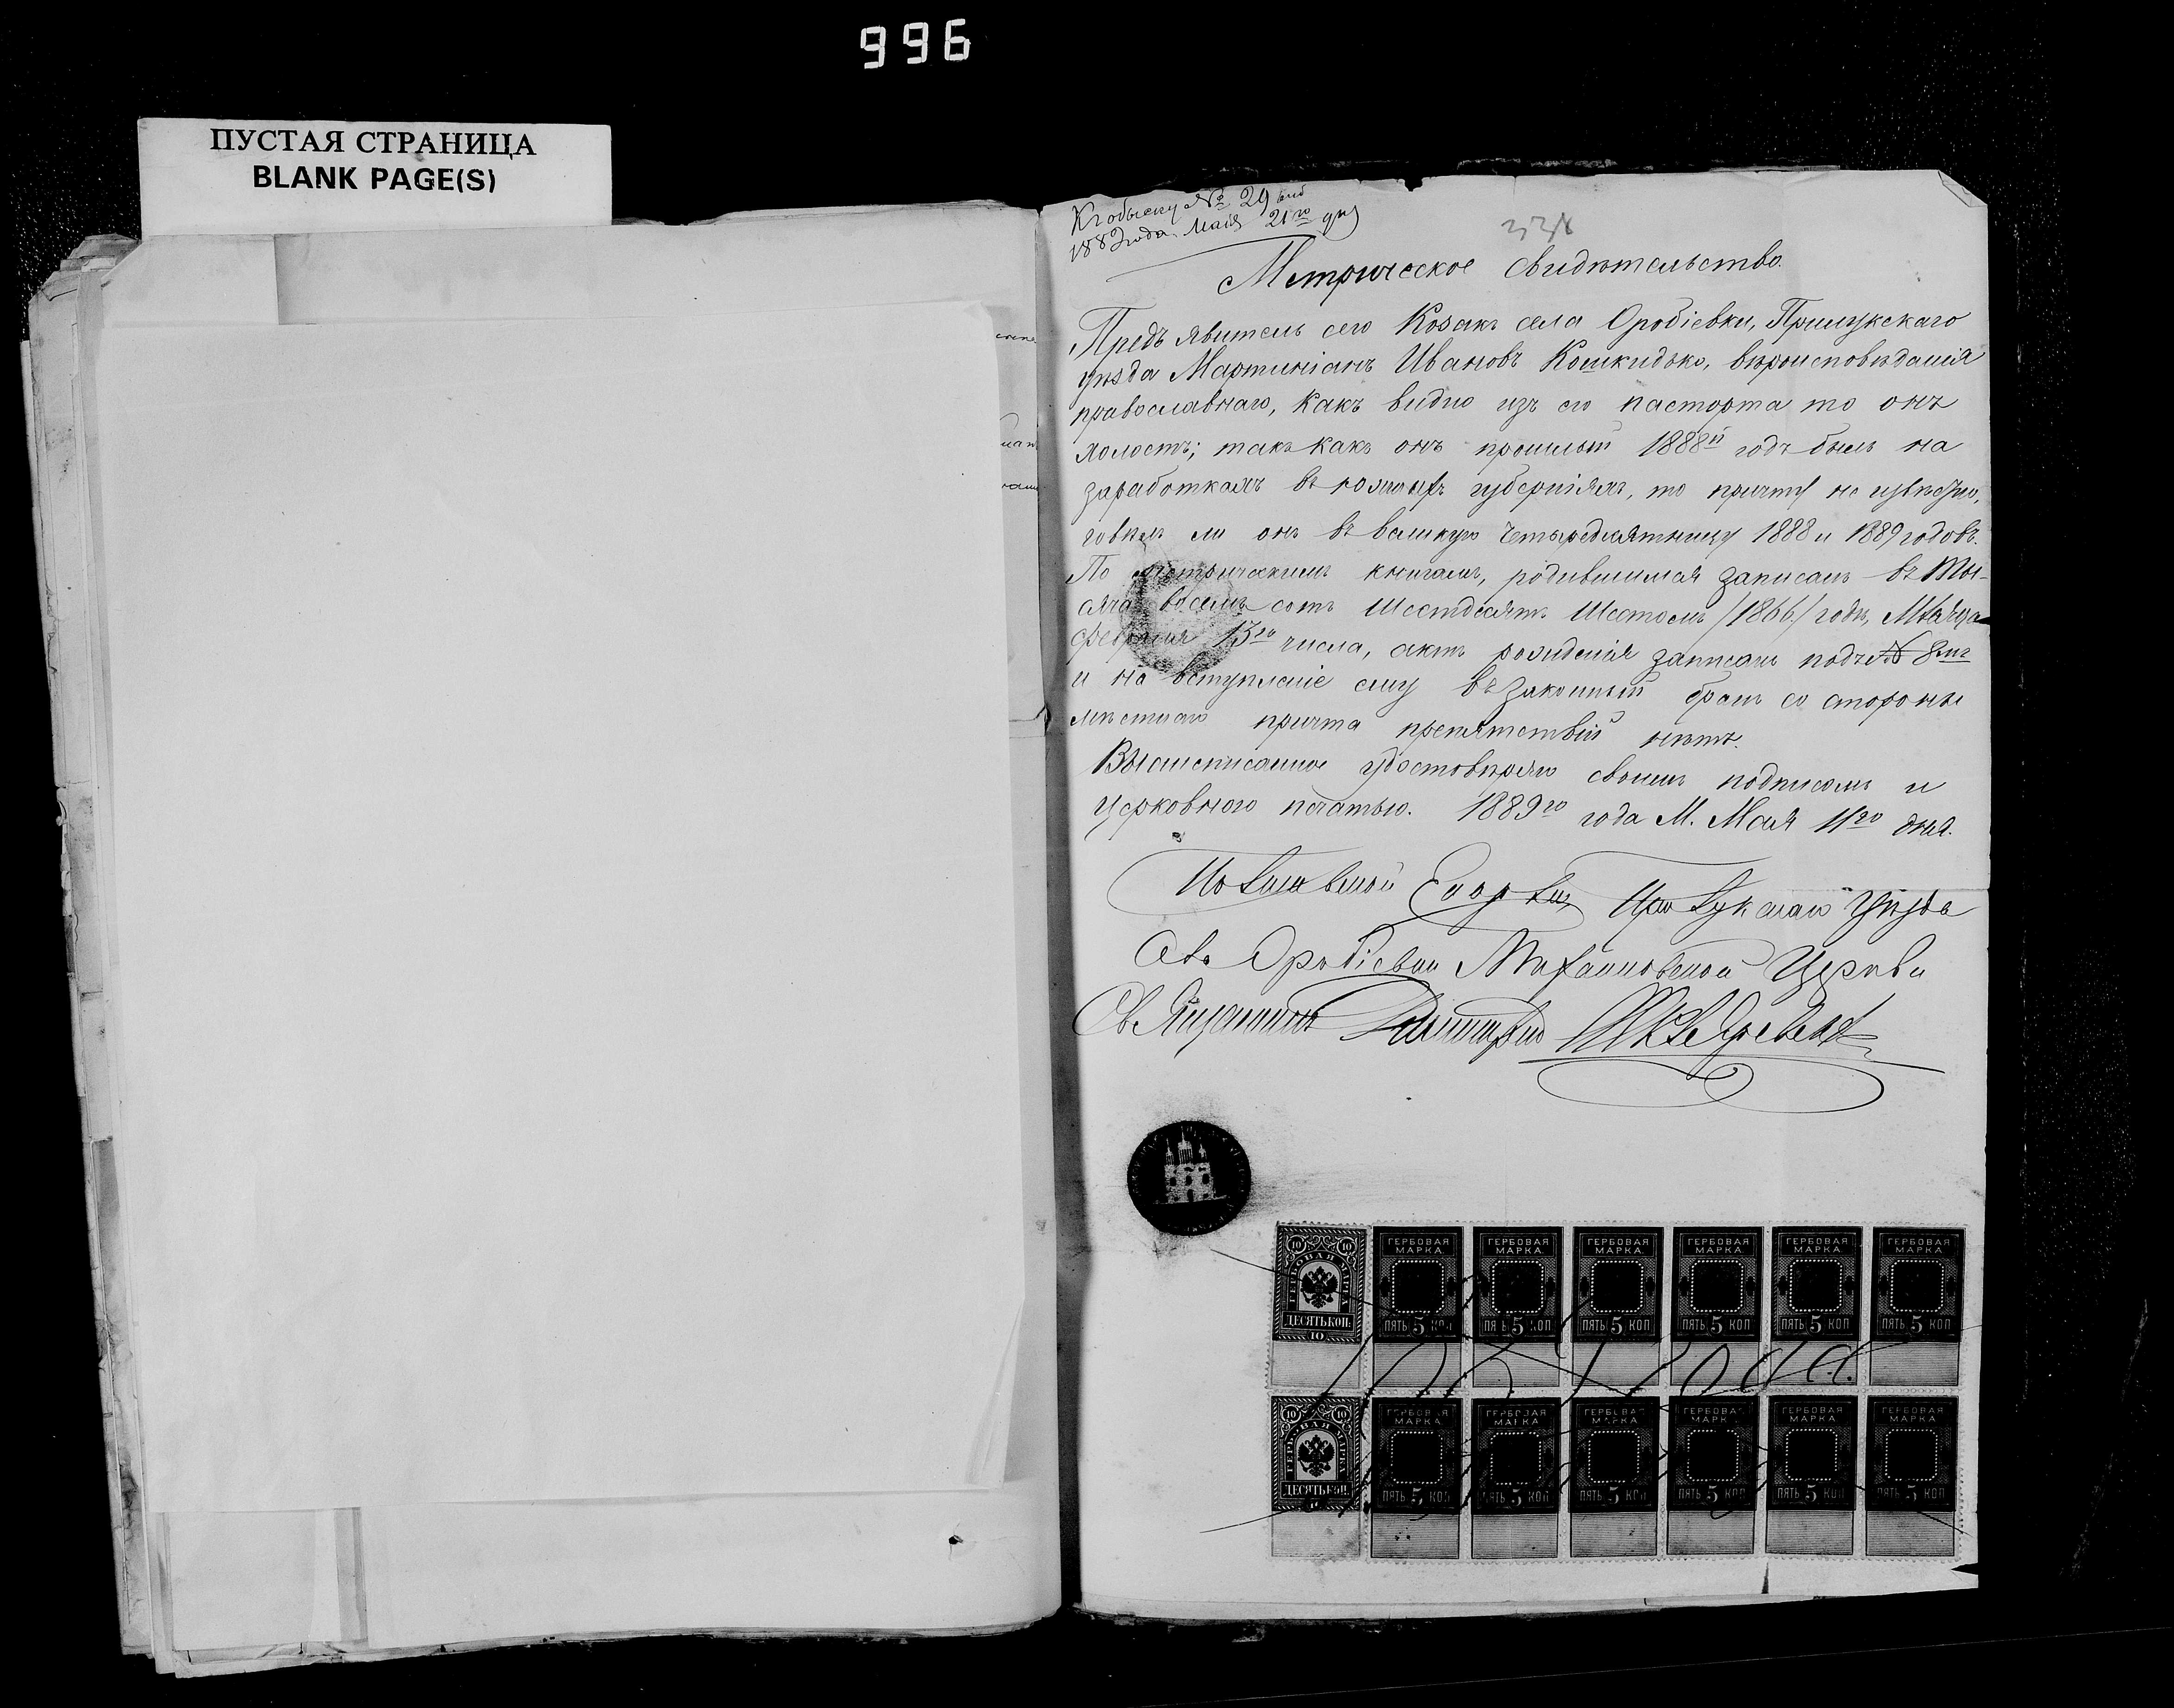 996
ПУСТАЯ СТРАНИЦА
BLANK PAGE(S)
Къ обыску № 29
1889 года. Маія 21го дня
338
Метрическое свидѣтельство.
Предъявитель сего Козакъ села Оробіевки, Прилукскаго
уѣзда Мартиніанъ Ивановъ Кошкидько, вѣроисповѣданія
православнаго, какъ видно изъ его паспорта то онъ
холостъ; такъ какъ онъ прошлый 1888й годъ былъ на
заработкахъ въ южныхъ губерніяхъ, то причту не извѣстно,
говѣлъ ли онъ въ великую четыредесятницу 1888 и 1889 годовъ.
По метрическимъ книгамъ, родившимся записанъ въ Ты-
сяча восемь сотъ Шестдесятъ Шестомъ /1866/ годѣ, М-ца
Февраля 13го числа, актъ рожденія записанъ подъ № 8мъ
и на вступленіе ему въ законный бракъ со стороны
мѣстнаго причта препятствій нѣтъ.
Вышеписанное удостовѣряю своимъ подписомъ и
церковною печатью. 1889го года М. Маія 11го дня.
Полтавской Епархіи, Прилукскаго Уѣзда
Села Оробіевки Михайловской Церкви
Священникъ Димитрій
ГЕРБОВАЯ МАРКА ДЕСЯТЬ КОП. 10
ГЕРБОВАЯ МАРКА ПЯТЬ 5 КОП
ГЕРБОВАЯ МАРКА ПЯТЬ 5 КОП
ГЕРБОВАЯ МАРКА ПЯТЬ 5 КОП
ГЕРБОВАЯ МАРКА ПЯТЬ 5 КОП
ГЕРБОВАЯ МАРКА ПЯТЬ 5 КОП
ГЕРБОВАЯ МАРКА ПЯТЬ 5 КОП
ГЕРБОВАЯ МАРКА ДЕСЯТЬ КОП. 10
ГЕРБОВАЯ МАРКА ПЯТЬ 5 КОП
ГЕРБОВАЯ МАРКА ПЯТЬ 5 КОП
ГЕРБОВАЯ МАРКА ПЯТЬ 5 КОП
ГЕРБОВАЯ МАРКА ПЯТЬ 5 КОП
ГЕРБОВАЯ МАРКА ПЯТЬ 5 КОП
ГЕРБОВАЯ МАРКА ПЯТЬ 5 КОП